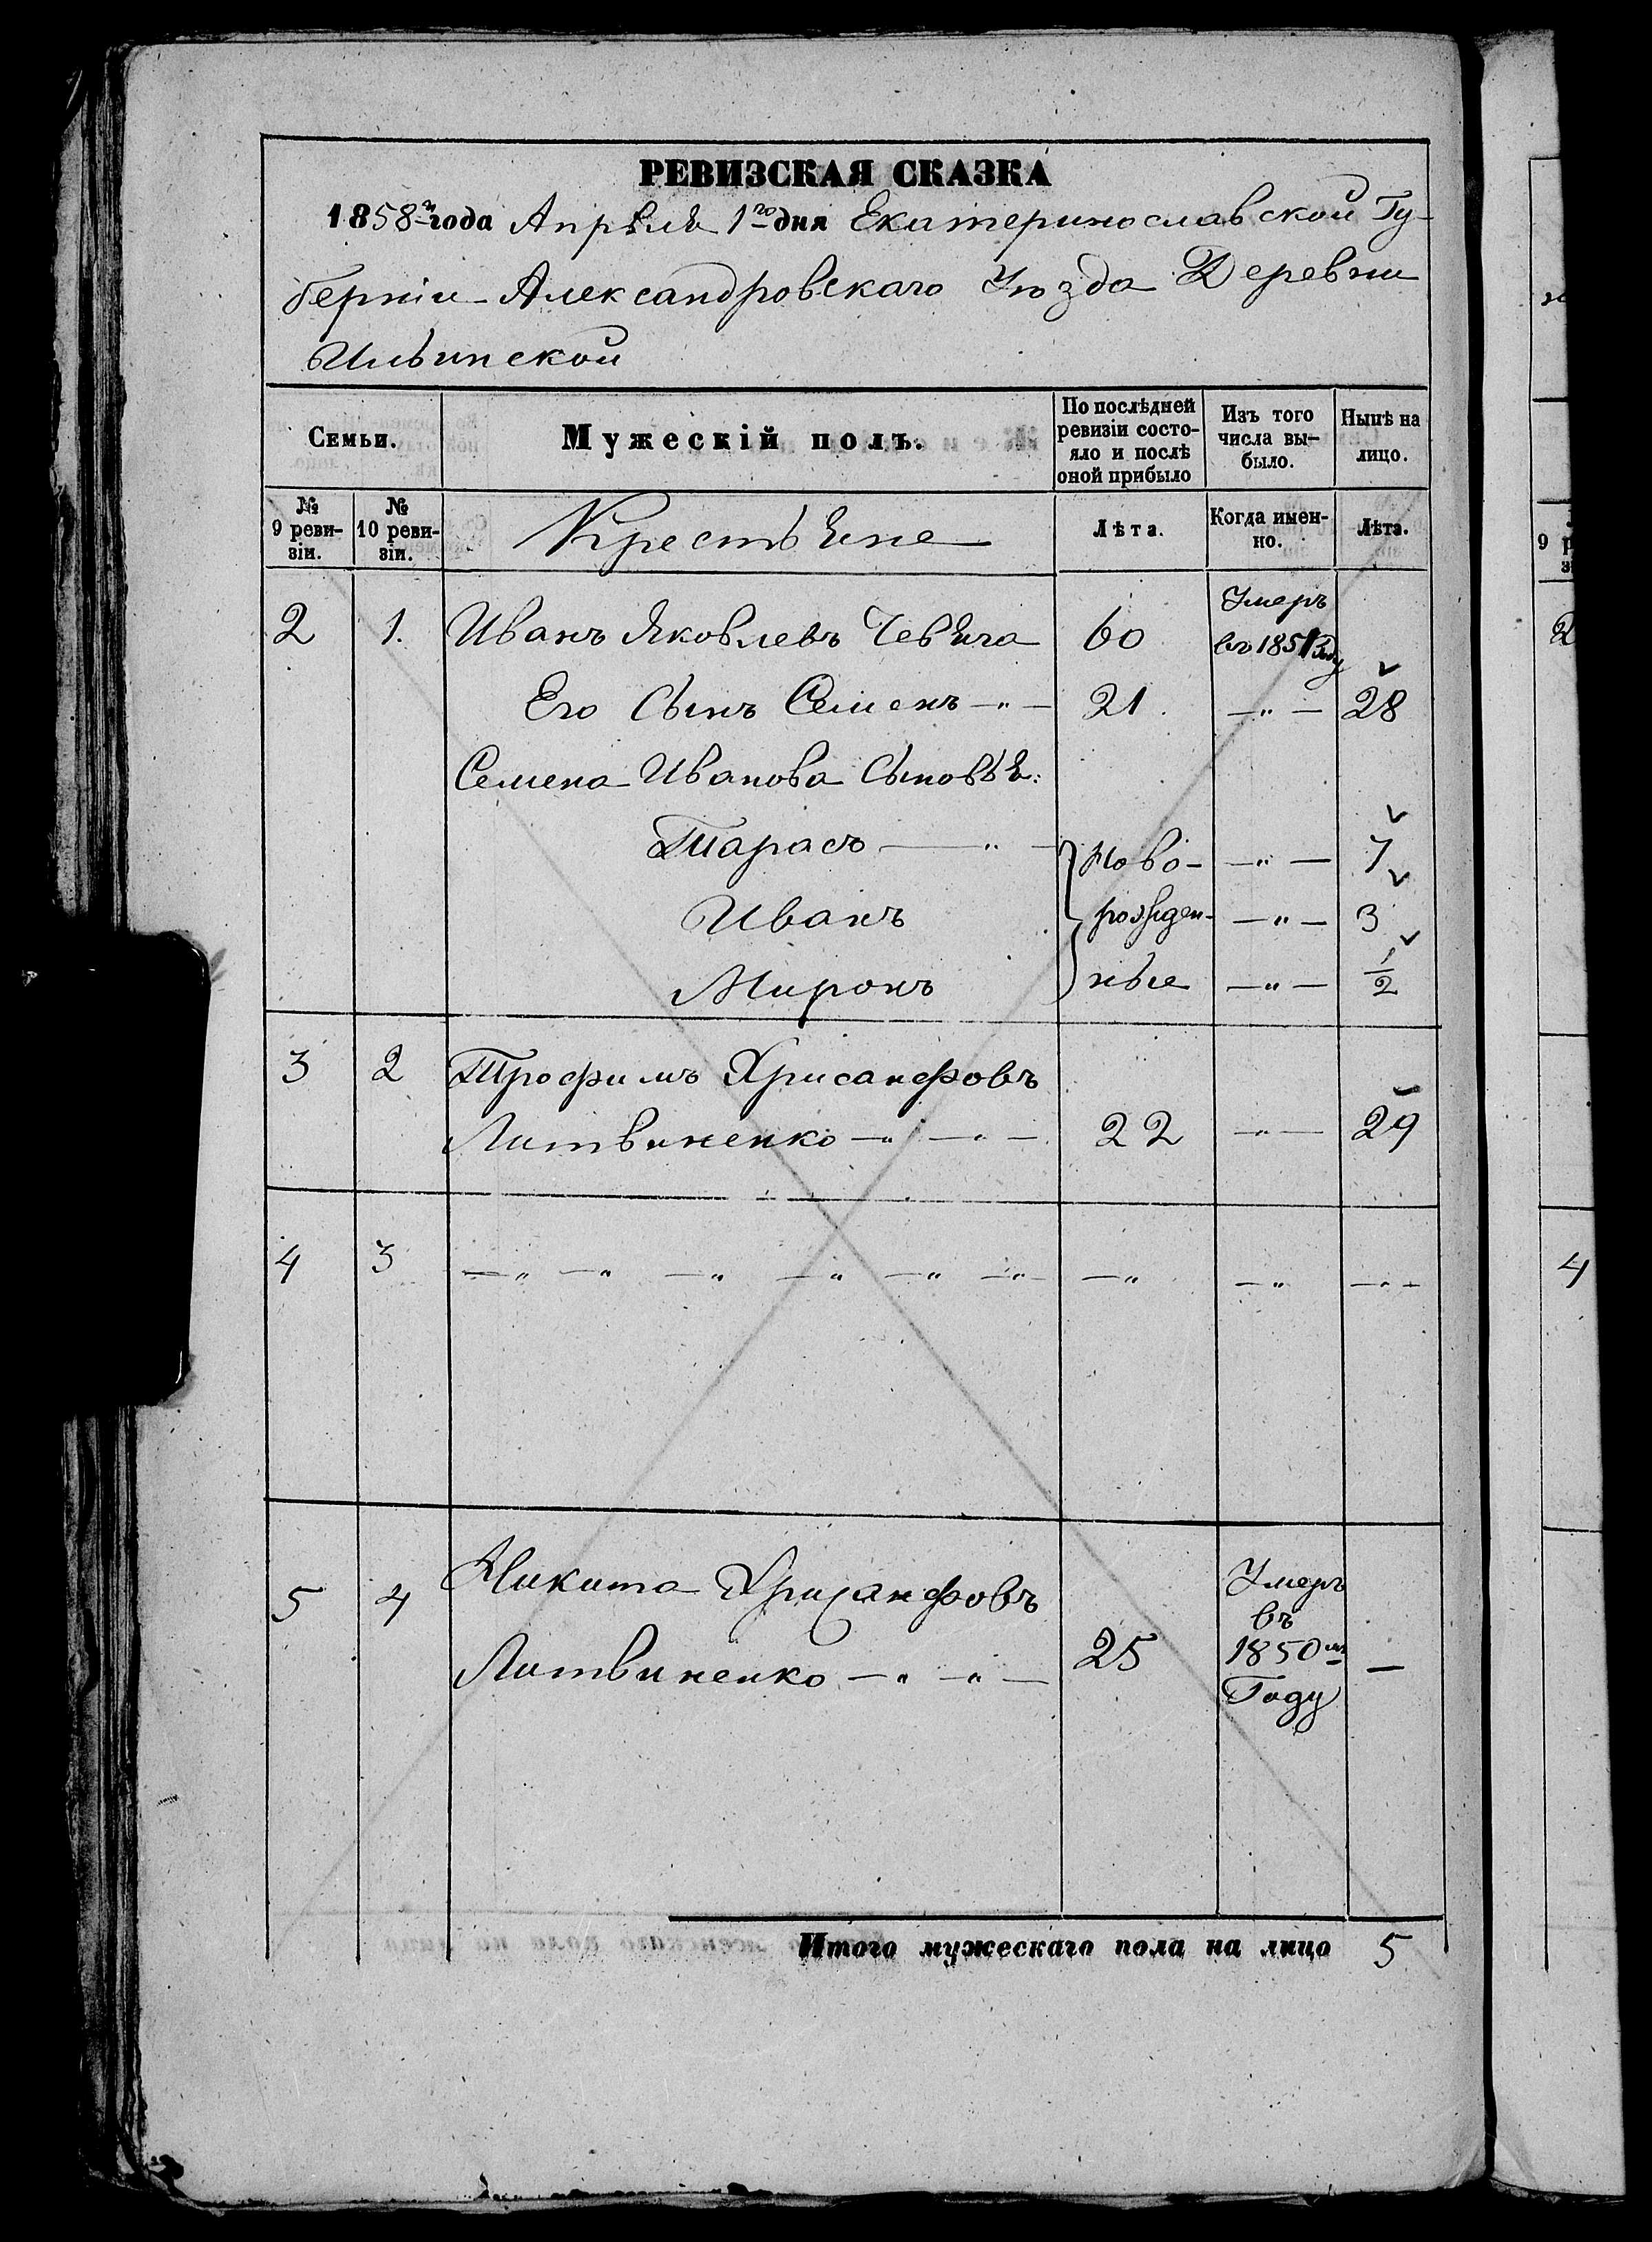 РЕВИЗСКАЯ СКАЗКА
1858го года Апрѣля 1го дня Екатеринославской Гу-
берніи Александровскаго Уѣзда Деревни
Ильинской
Семьи.
Мужескій полъ.
По послѣдней ревизіи состо-яло и послѣ оной прибыло
Изъ того числа вы-было.
Нынѣ на лицо.
№ 9 реви-зіи.
№ 10 реви-зіи.
Крестьяне
Лѣта.
Когда имен-но.
Лѣта.
2 1. Иванъ Яковлевъ 60 Умеръ въ 1851 Году
Его Сынъ Семенъ —"— 21 —"— 28
Семена Иванова Сыновья:
Тарасъ —"— Ново- —"— 7
Иванъ рожден- —"— 3
Миронъ ные —"— 1/2
3 2 Трофимъ Хрисанфовъ
Литвиненко —"—"— 22 —"— 29
4 3 —" —" —" —" —" —"— —" —" —"—
5 4 Никита Хрисанфовъ
Литвиненко —"—"— 25 Умеръ въ 1850м Году —
Итого мужескаго пола на лицо 5
9
2
4